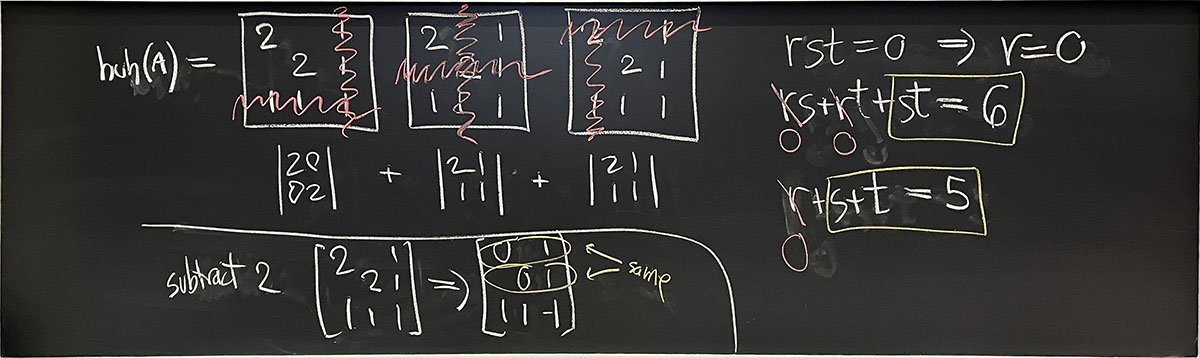 buh(A) =
2 1
2 1
1 1 1
2 1
2 1
1 1 1
2 1
2 1
1 1 1
|2 0| + |2 1| + |2 1|
|0 2| |1 1| |1 1|
subtract 2 [2 1] => [0 1] same
[2 1] [0 1]
[1 1 1] [1 1 -1]
rst = 0 ⇒ r = 0
rs + rt + st = 6
0 0
r + s + t = 5
0